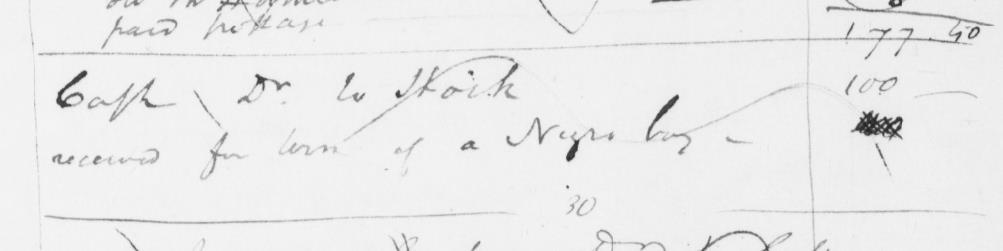 paid postage
177.50
Cash Dr. to Stock 100
received for of a Negro boy -
30